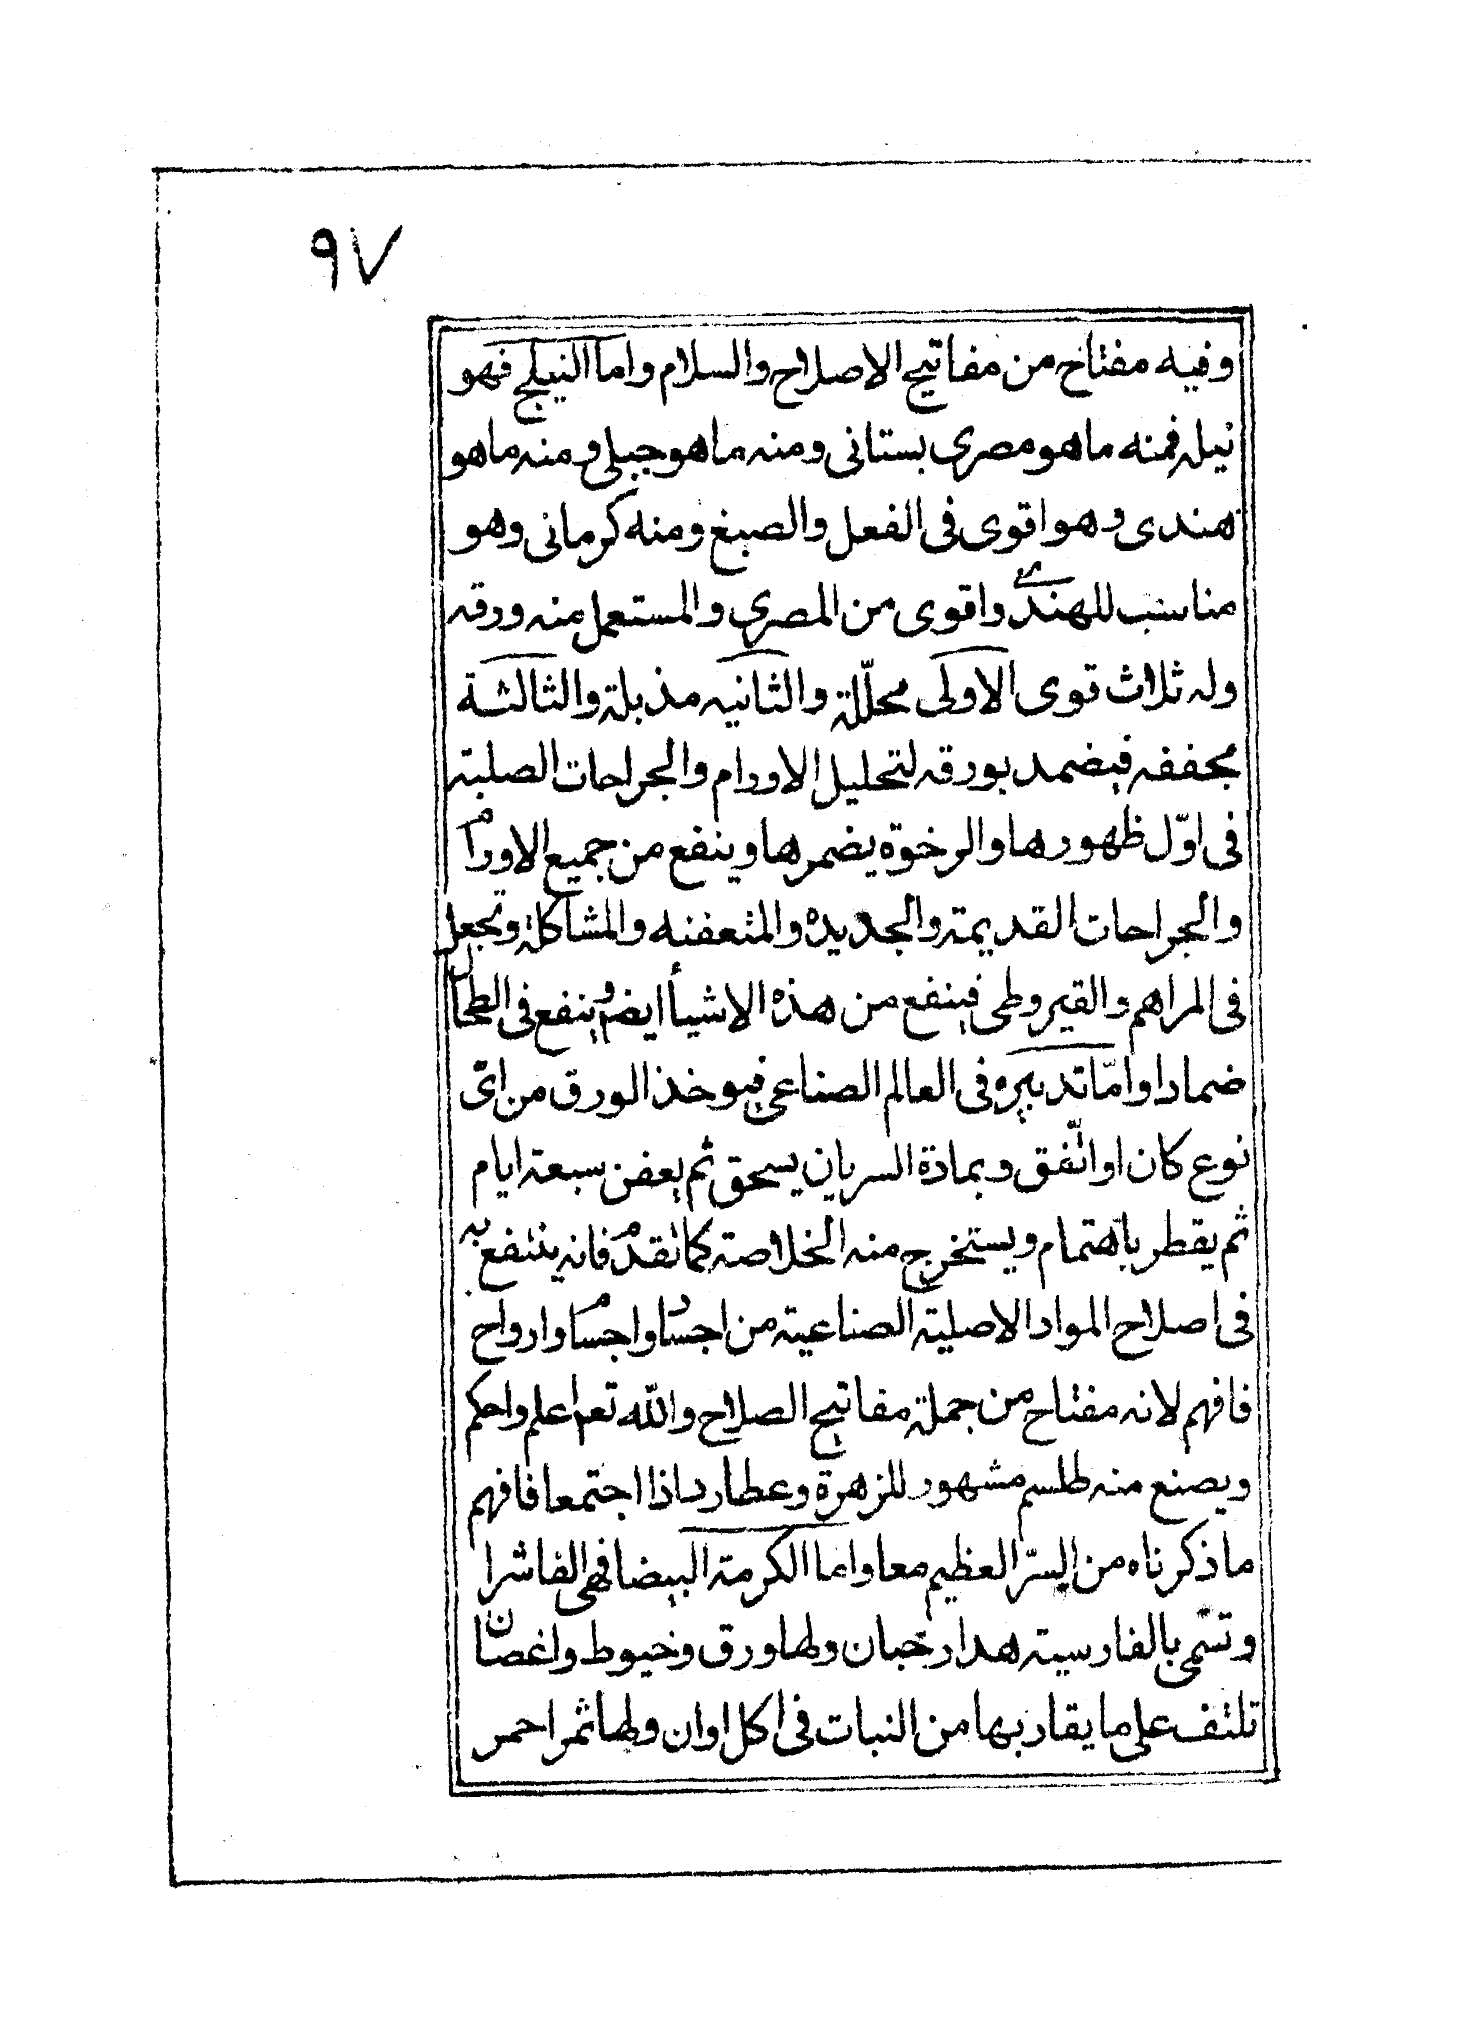 ٩٧
وفيه مفتاح من مفاتيح الاصلاح والسلام واما النيلج فهو
نيله فمنه ما هو مصرى بستانى ومنه ما هو جبلى ومنه ما هو
هندى وهو اقوى فى الفعل والصبغ ومنه كرمانى وهو
مناسب للهندى واقوى من المصرى والمستعمل منه ورقه
وله ثلاث قوى الاولى محلّلة والثانيه مذبلة والثالثة
مجففه فيضمد بورقه لتحليل الاورام والجراحات الصلبة
فى اوّل ظهورها والرخوة يضمرها وينفع من جميع الاورام
والجراحات القديمة والجديده والمتعفنه والمشاكلة وتجعل
فى المراهم والقيروطى فينفع من هذه الاشيأ ايضا وينفع فى الطحال
ضمادا وامّا تدبيره فى العالم الصناعى فيوخذ الورق من اىّ
نوع كان او اتّفق وبمادة السريان يسحق ثم يعفن سبعة ايام
ثم يقطر باهتمام ويستخرج منه الخلاصة كما تقدم فانه ينتفع به
فى اصلاح المواد الاصلية الصناعية من اجساد واجسام وارواح
فافهم لانه مفتاح من جملة مفاتيح الصلاح والله تعم اعلم واحكم
ويصنع منه طلسم مشهور للزهرة وعطارد اذا اجتمعا فافهم
ما ذكرناه من السرّ العظيم معا واما الكرمة البيضا فهى الفاشرا
وتسّمى بالفارسية هدارخبان ولها ورق وخيوط واغصان
تلتف على ما يقاربها من النبات فى اكل اوان ولها ثمر احمر